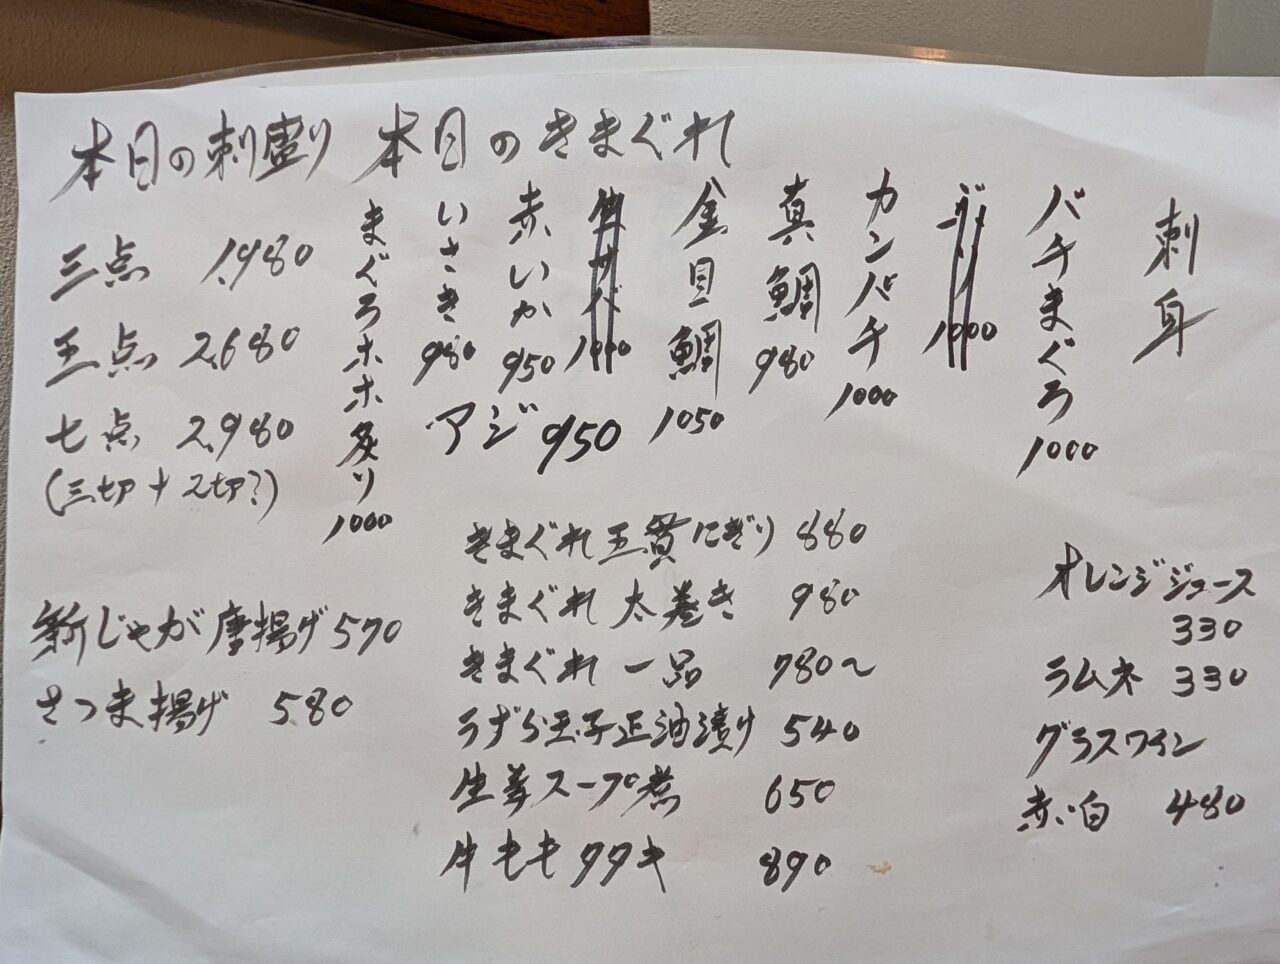 本日の刺盛り
三点 1,980
五点 2,680
七点 2,980
(三切+2切?)
本日のきまぐれ
刺身
バチまぐろ 1000
ブリ 1000
カンパチ 1000
真鯛 980
金目鯛 1050
サバ 1000
赤いか 950
いさき 980
まぐろホホ炙り 1000
アジ 950
新じゃが唐揚げ 570
さつま揚げ 580
きまぐれ五貫にぎり 880
きまぐれ太巻き 980
きまぐれ一品 780〜
うずら玉子正油漬け 540
スープ煮 650
牛モモタタキ 890
オレンジジュース
330
ラムネ 330
グラスワイン
赤・白 480